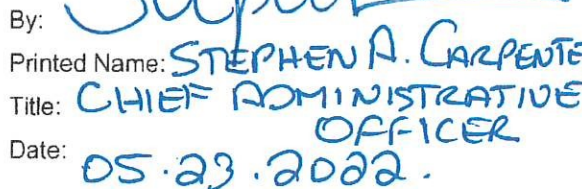 By:
Printed Name: STEPHEN A. CARPENTE
Title: CHIEF ADMINISTRATIVE
OFFICER
Date: 05.23.2022.